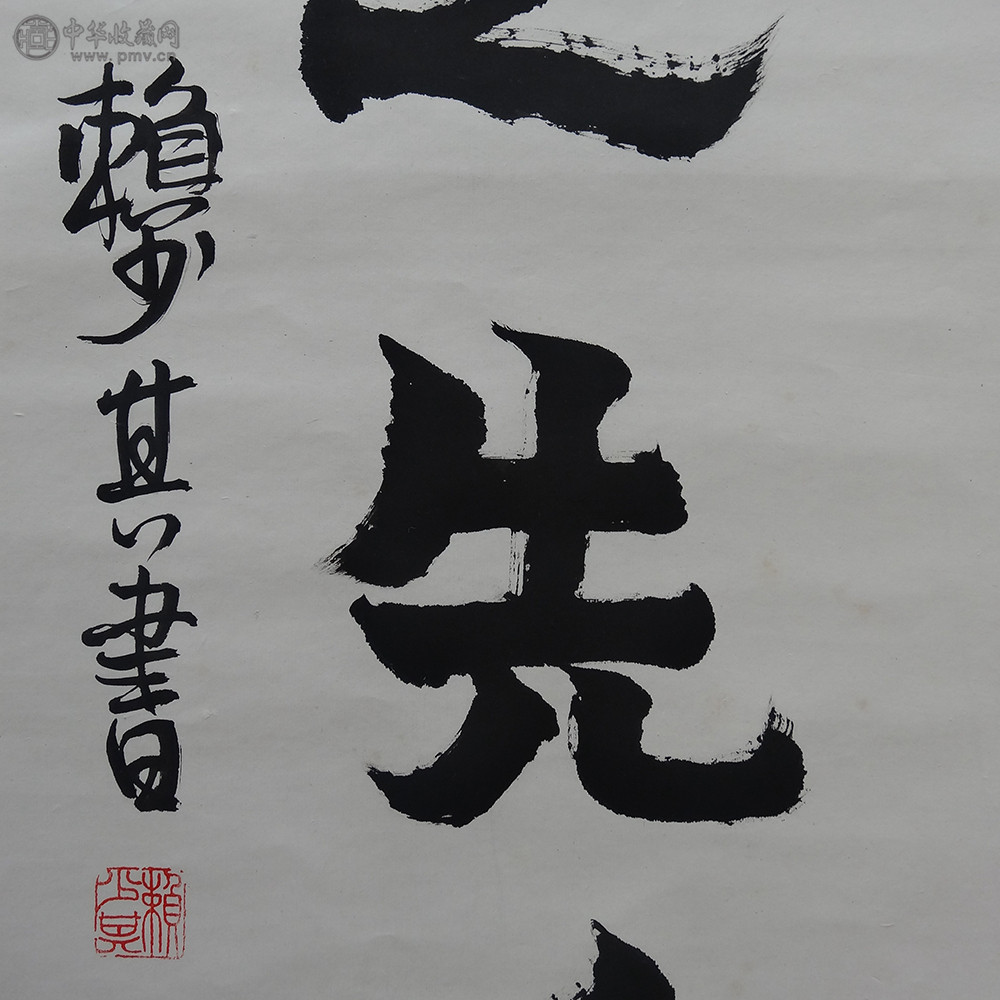 中华收藏网
www.pmv.cn
先
賴少其書
賴少其